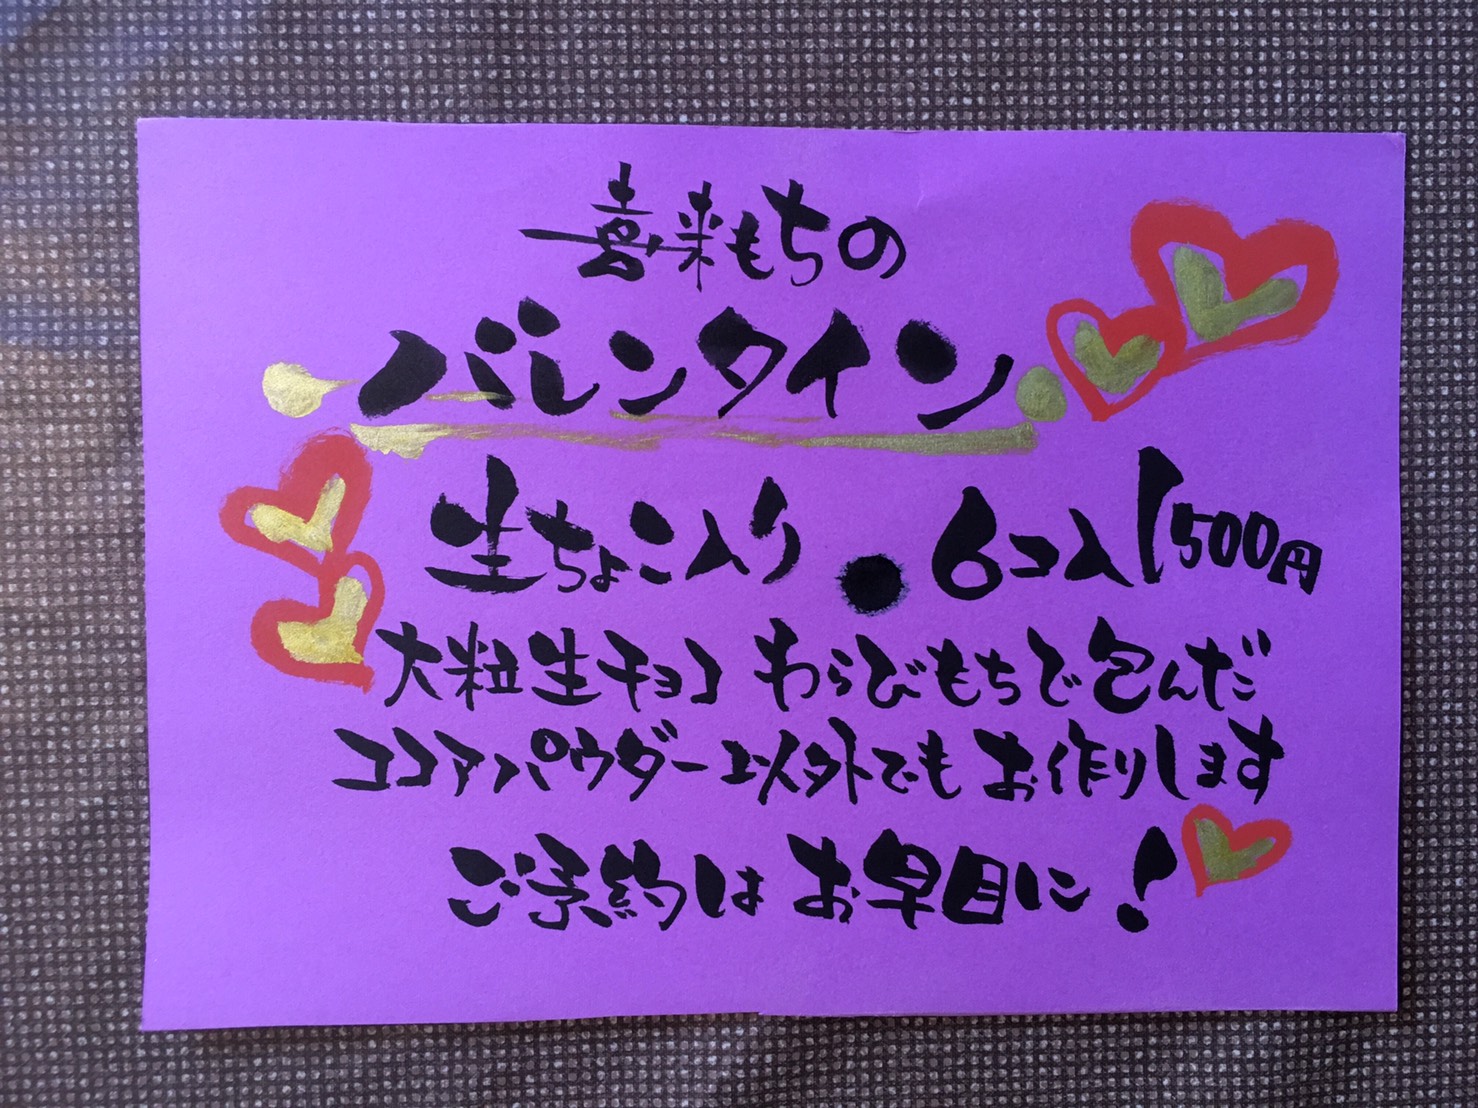 喜来もちの
バレンタイン
生ちょこ入り ● 6コ入1500円
大粒生チョコ わらびもちで包んだ
ココアパウダー以外でも お作りします
ご予約は お早目に!